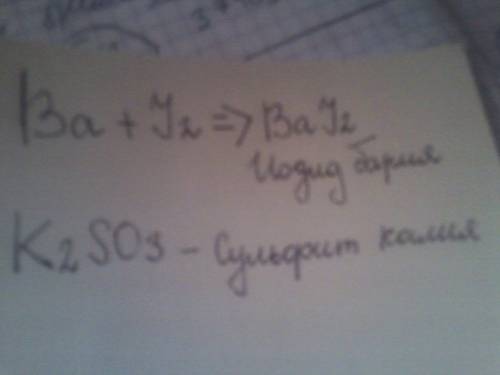 Ba + J2 => BaJ2
Иодид бария
K2SO3 - Сульфит калия